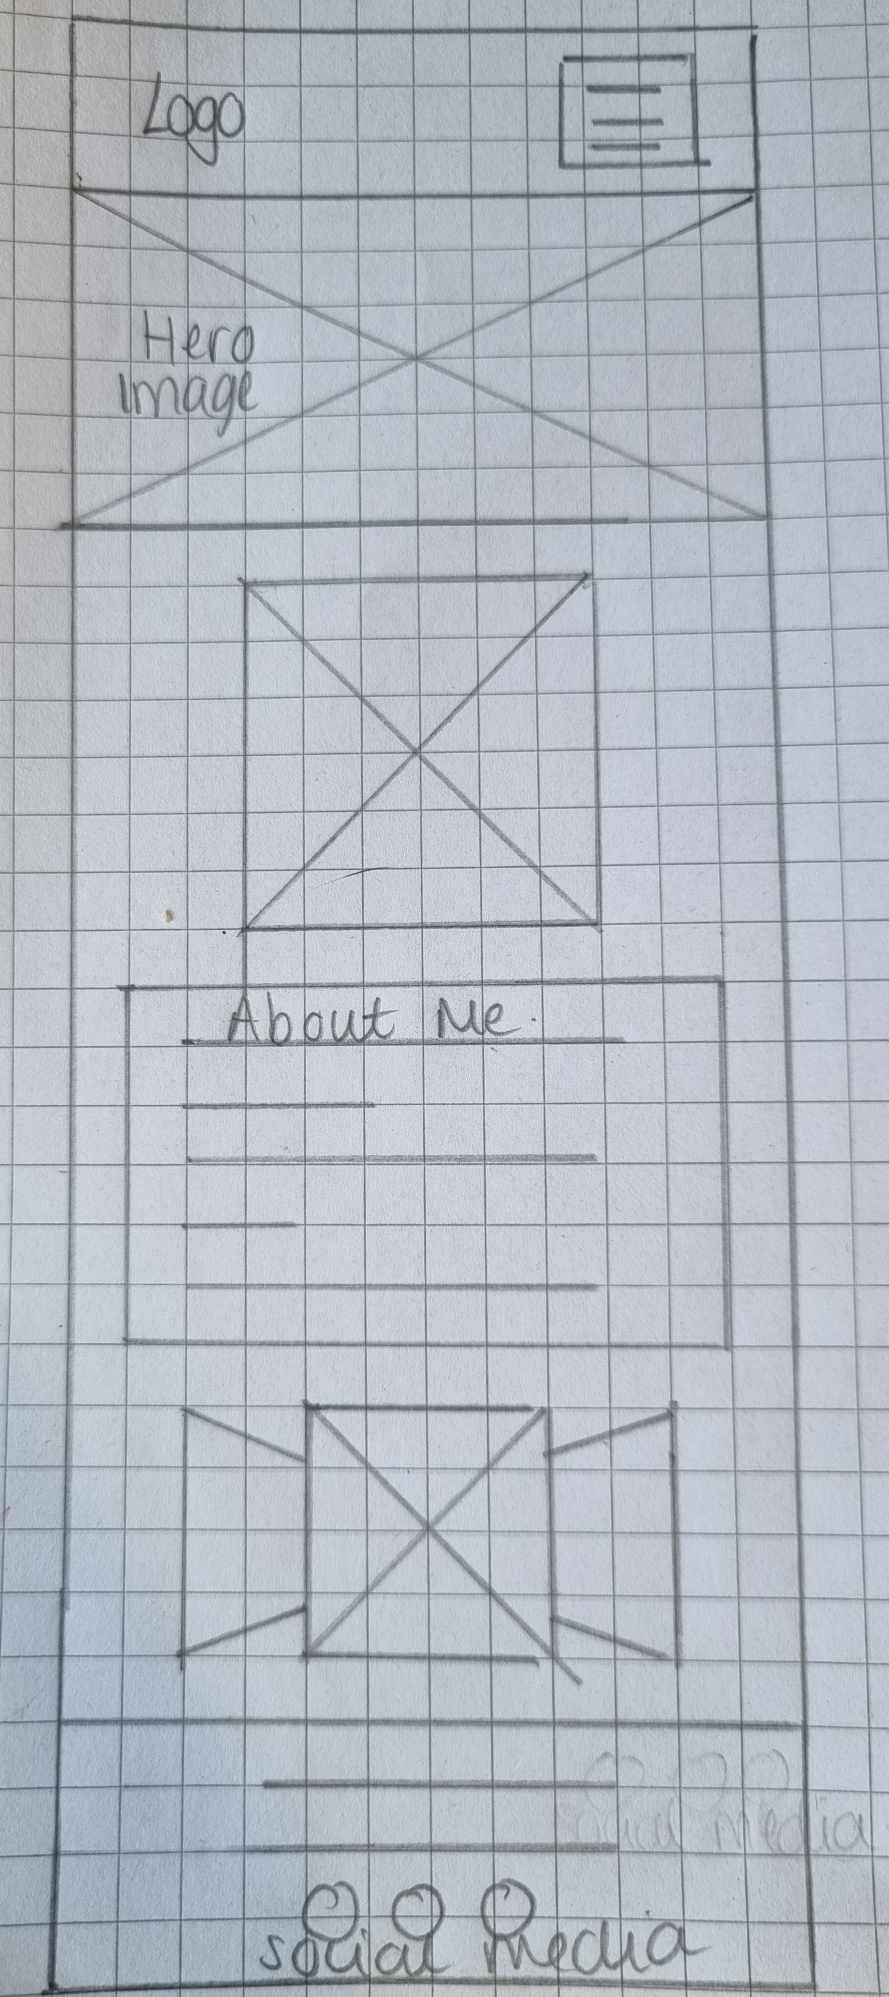 Logo
Hero
Image
About Me.
media
social media